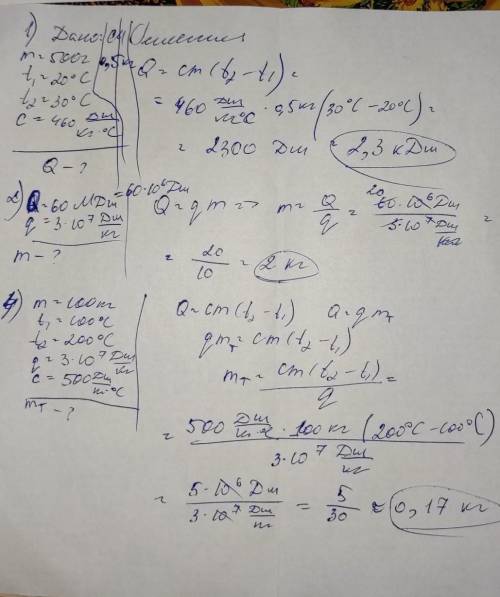 1) Дано: СИ Решение
m = 500г 0,5кг
t₁ = 20°C
t₂ = 30°C
c = 460 Дж/кг·°C
Q - ?
Q = cm(t₂ - t₁) =
= 460 Дж/кг·°C · 0,5кг (30°C - 20°C) =
= 2300 Дж = 2,3 кДж
2) Q = 60 МДж = 60·10⁶ Дж
q = 3·10⁷ Дж/кг
m - ?
Q = qm => m = Q/q = 60·10⁶ Дж / 3·10⁷ Дж/кг =
20
= 20/10 = 2 кг
4) m = 100кг
t₁ = 100°C
t₂ = 200°C
q = 3·10⁷ Дж/кг
c = 500 Дж/кг·°C
mт - ?
Q = cm(t₂ - t₁) Q = qmт
qmт = cm(t₂ - t₁)
mт = cm(t₂ - t₁)/q =
= 500 Дж/кг·°C · 100 кг (200°C - 100°C) / 3·10⁷ Дж/кг
= 5·10⁶ Дж / 3·10⁷ Дж/кг = 5/30 ≈ 0,17 кг